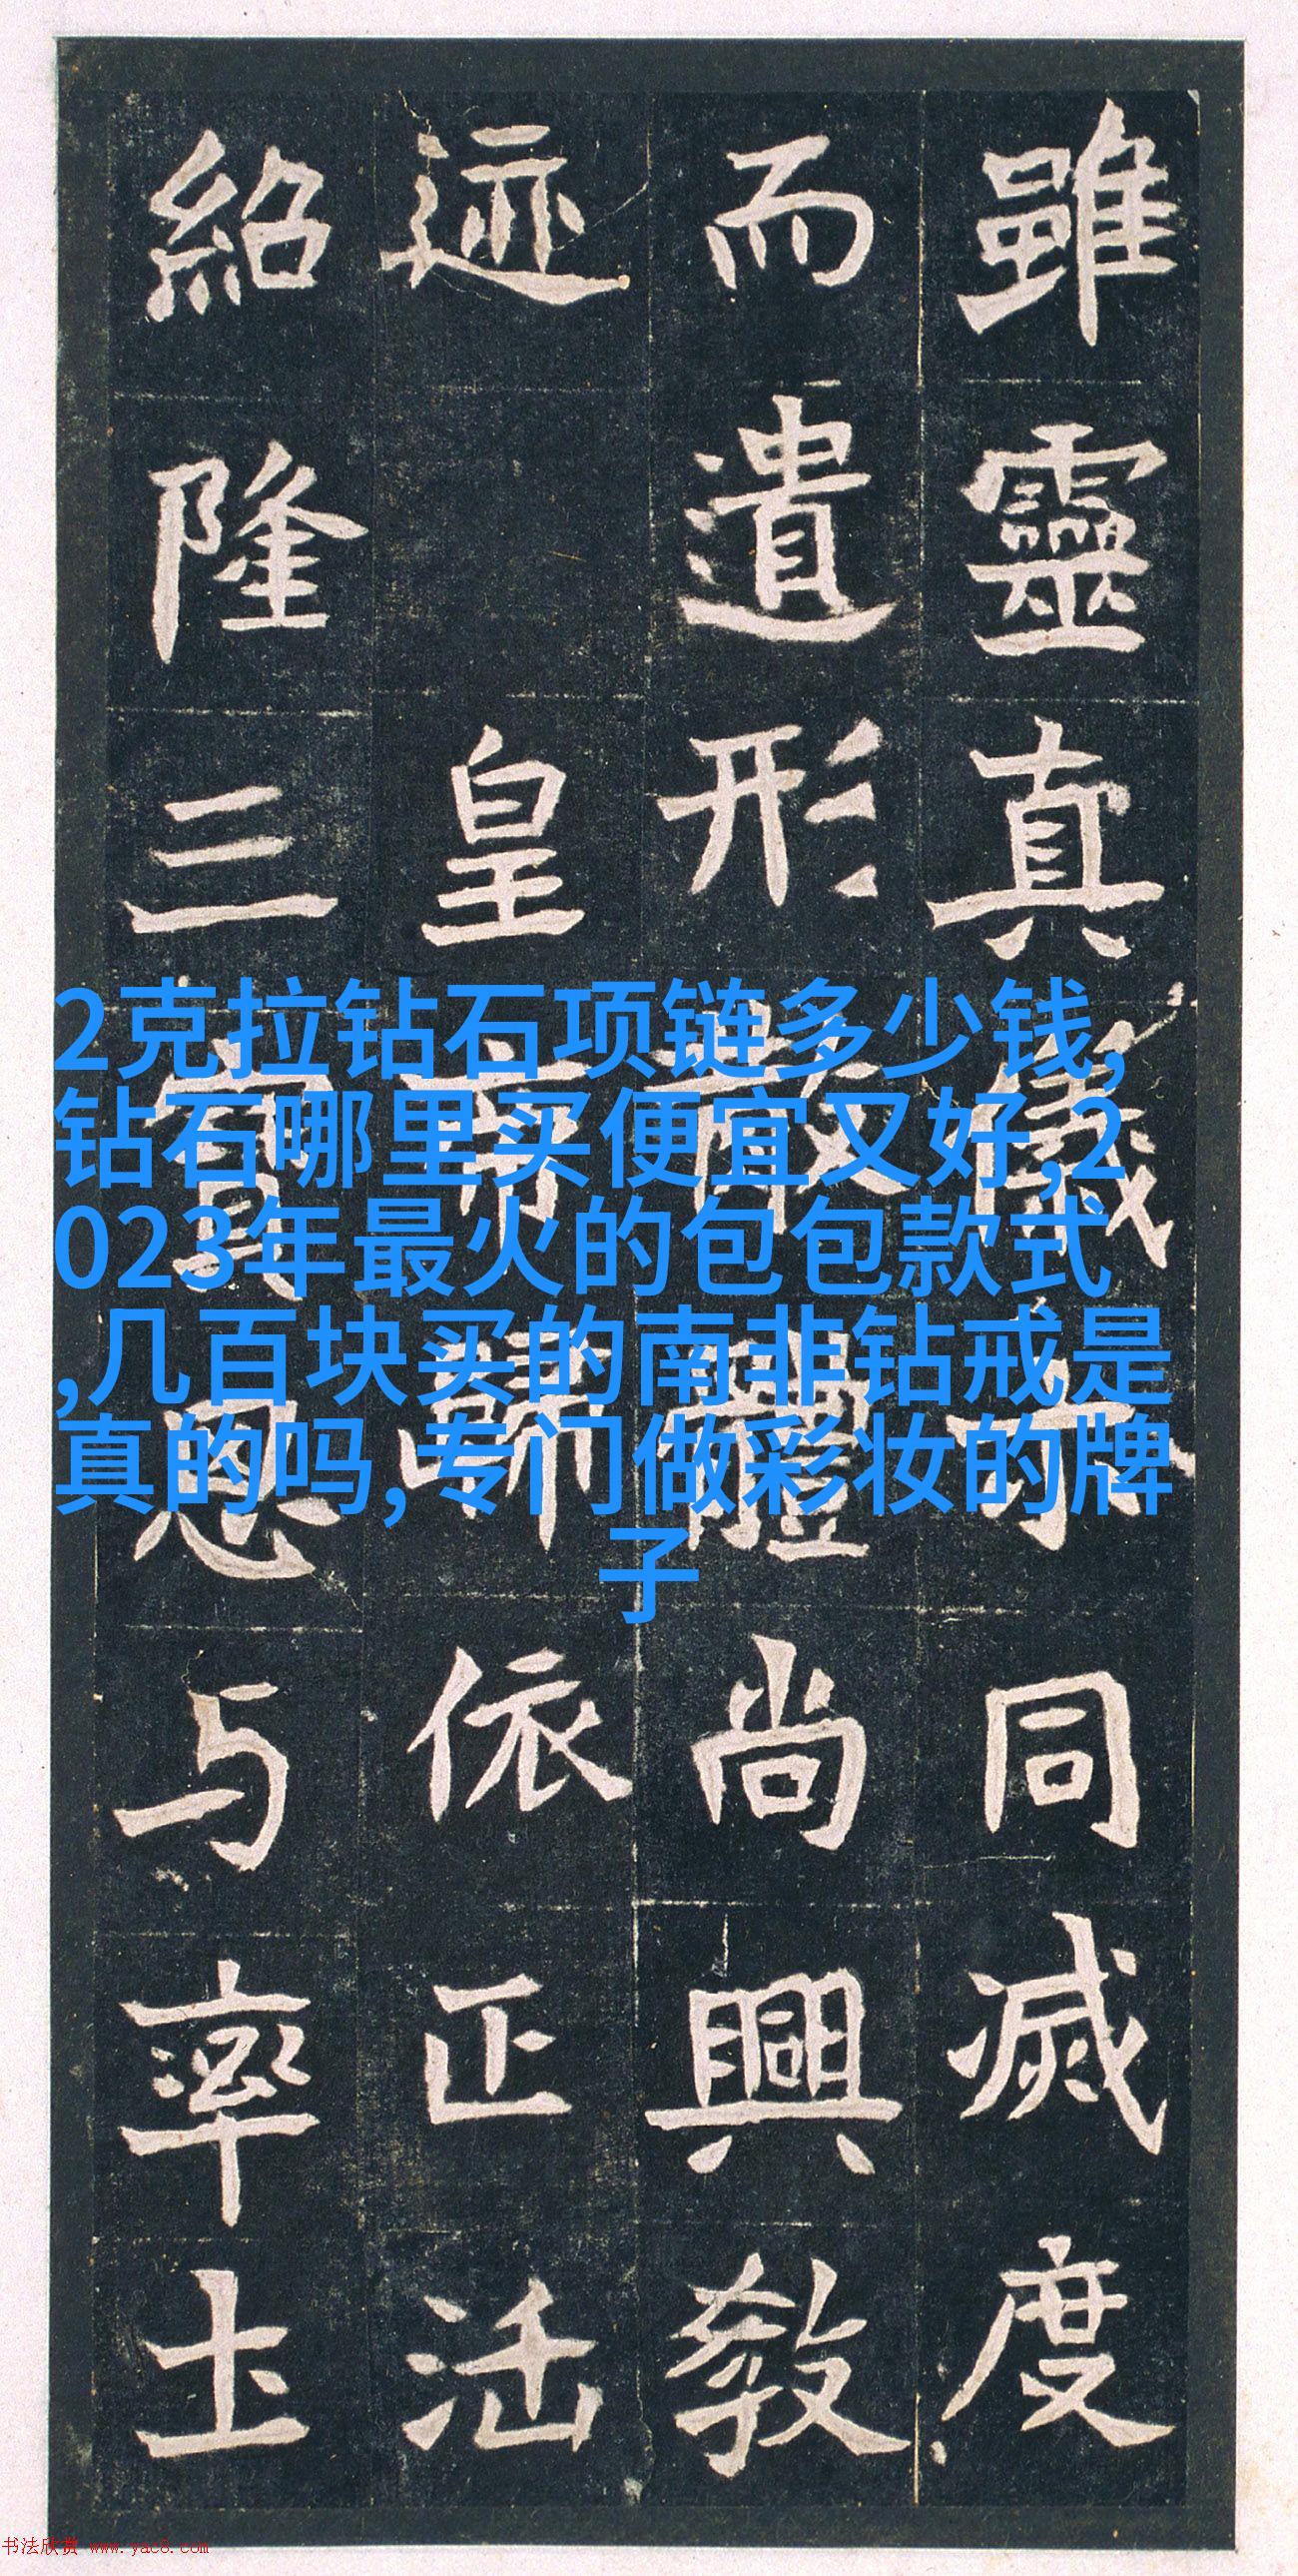 雖靈真儀示同滅度
而遺形散體尚興教
迹 皇帝歸依正法
紹隆三寶恩与率土
2克拉钻石项链多少钱,
钻石哪里买便宜又好,2
023年最火的包包款式
,几百块买的南非钻戒是
真的吗,专门做彩妆的牌
子
书法欣赏 www.yac8.com